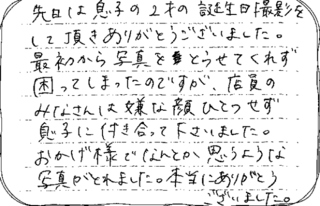 先日は息子の2才の誕生日撮影を
して頂きありがとうございました。
最初から写真をとらせてくれず
困ってしまったのですが、店員の
みなさんは嫌な顔ひとつせず
息子に付き合って下さいました。
おかげ様でなんとか思うような
写真がとれました。本当にありがとう
ございました。